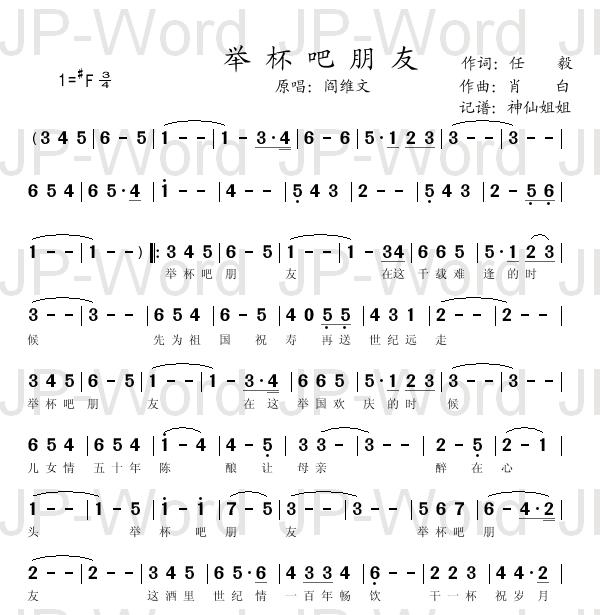 举杯吧朋友
作词：任 毅
1=#F 3/4
原唱：阎维文
作曲：肖 白
记谱：神仙姐姐
(3 4 5 | 6 - 5 | 1 - - | 1 - 3·4 | 6 - 6 | 5·1 2 3 | 2 - - | 2 - 6 |
6 5 4 | 6 5·4 | 1 - - | 4 - - | 5 4 3 | 2 - - | 5 4 3 | 2 - 5 6 |
1 - - | 1 - - ) |: 3 4 5 | 6 - 5 | 1 - - | 1 - 34 | 6 6 5 | 5·1 2 3 |
举杯吧 朋 友 在这 千载难 逢的时
3 - - | 3 - - | 6 5 4 | 6 - 5 | 4 0 5 5 | 4 3 1 | 2 - - | 2 - - |
候 先为祖 国 祝 寿 再送 世纪远 走
3 4 5 | 6 - 5 | 1 - - | 1 - 3·4 | 6 6 5 | 5·1 2 3 | 3 - - | 3 - - |
举杯吧 朋 友 在这 举国欢 庆的时 候
6 5 4 | 6 5 4 | 1 - 4 | 4 - 5 | 3 - 3 | 3 - - | 2 - 5 | 2 - 1 |
儿女情 五十年 陈 酿 让 母亲 醉 在 心
1 - - | 1 - 5 | 1 - 1 | 7 - 5 | 3 - - | 3 - - | 5 6 7 | 6 - 4·2 |
头 举 杯 吧 朋 友 举杯吧 朋
2 - - | 2 - - | 6 5 4 | 6 5·6 | 3 4 3 | 6 - - | 2 - 2 | 4 4·2 |
友 这酒里 世纪情 一百年畅 饮 干一杯 祝岁月
JP-Word